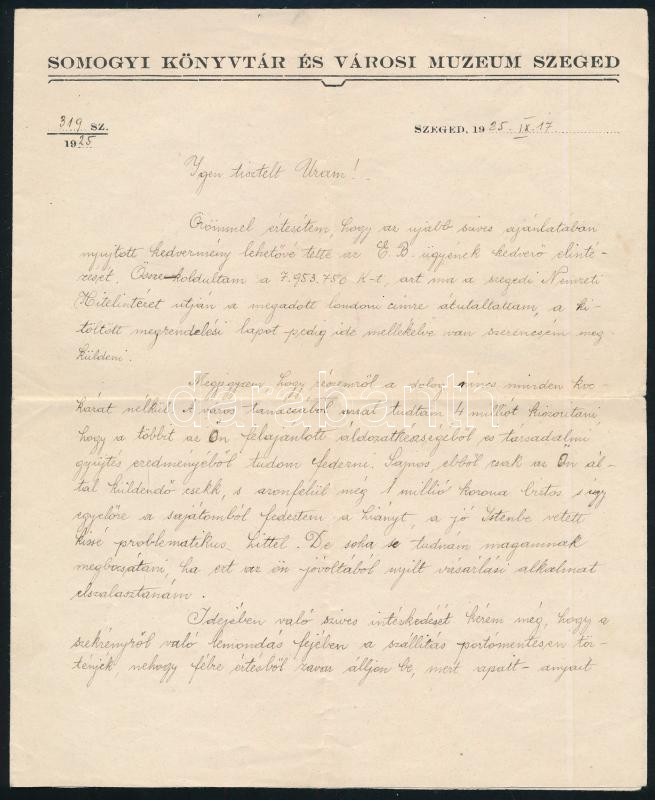 SOMOGYI KÖNYVTÁR ÉS VÁROSI MUZEUM SZEGED
319 SZ.
1925
SZEGED, 1925. IX. 17
Igen tisztelt Uram!
Örömmel értesítem, hogy az ujabb szives ajánlatában
nyujtott kedvezmény lehetővé tette az E. B. ügyének kedvező elinté-
zését. Összekoldultam a 7.953.750 K-t, azt ma a szegedi Nemzeti
Hitelintézet utján a megadott londoni címre átutaltattam, a ki-
töltött megrendelési lapot pedig ide mellékelve van szerencsém meg-
küldeni.
Megjegyzem hogy részemről a dolog nincs minden koc-
kázat nélkül. A város tanácsából azzal tudtam 4 milliót kiszoritani
hogy a többit az Ön felajánlott áldozatkészségéből és társadalmi
gyüjtés eredményéből tudom fedezni. Sajnos ebből csak az Ön ál-
tal küldendő csekk, s azonfelül még 1 millió korona biztos s így
egyelőre a sajátomból fedeztem a hiányt, a jó Istenbe vetett
kissé problematikus hittel. De soha se tudnám magamnak
megbocsátani, ha ezt az Ön jóvoltából nyilt vásárlási alkalmat
elszalasztanám.
Idejében való szives intézkedését kérem még, hogy a
szekrényről való lemondás fejében a szállítás portómentesen tör-
ténjék, nehogy félre értésből zavar álljon be, mert apait-anyait
darabanth